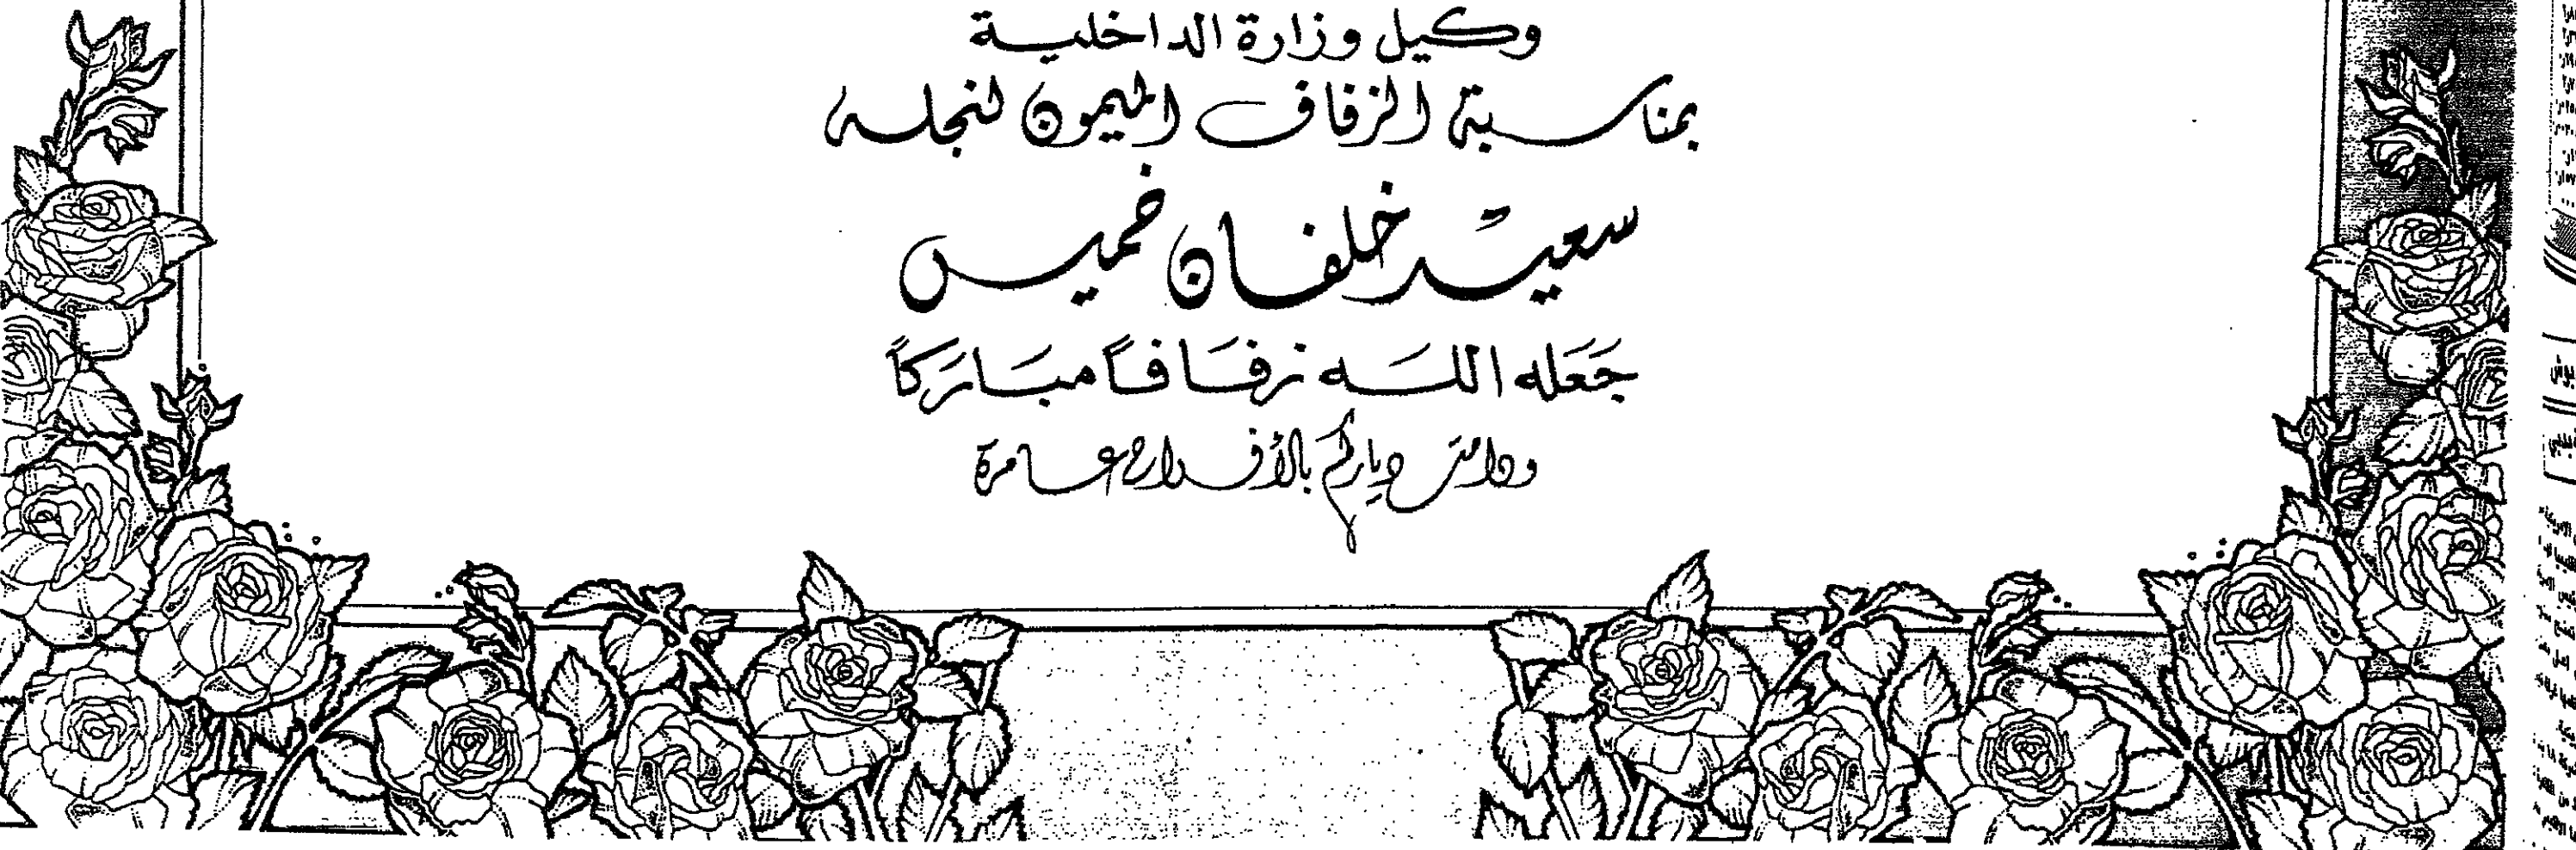 وكيل وزارة الداخلية
بمناسبة الزفاف الميمون لنجله
سعيد خلفان خميس
جَعَله اللـه زفَافاً مبَارَكاً
ودامت دياركم بالأفراح عامرة